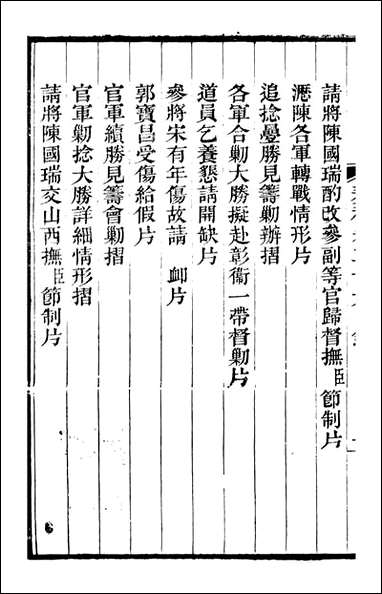 請將陳國瑞酌改參副等官歸督撫臣節制片
瀝陳各軍轉戰情形片
追捻疊勝見籌勦辦摺
各軍合勦大勝擬赴彰衞一帶督勦片
道員乞養懇請開缺片
參將宋有年傷故請 卹片
郭寶昌受傷給假片
官軍續勝見籌會勦摺
官軍勦捻大勝詳細情形摺
請將陳國瑞交山西撫臣節制片
6